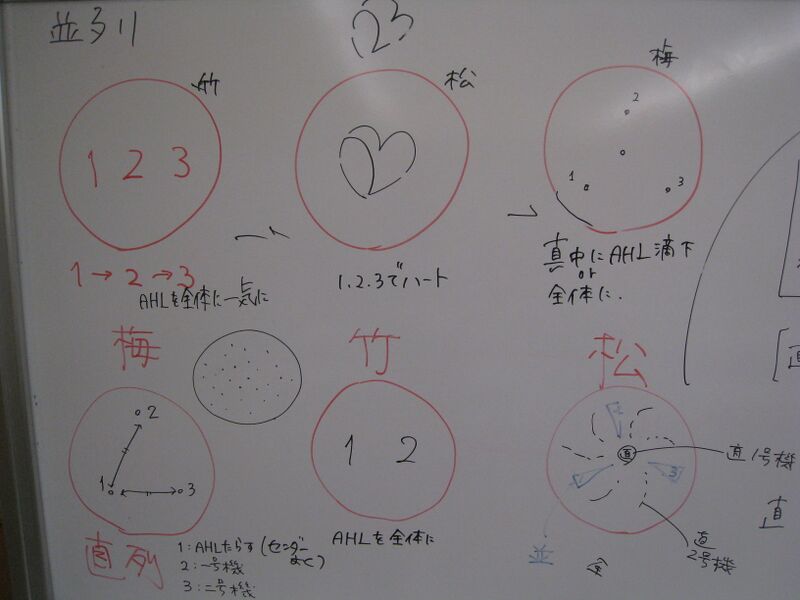 並列
123
竹
松
梅
1 2 3
2
1
3
1→2→3
AHLを全体に一気に
1.2.3でハート
真中にAHL滴下
or
全体に.
梅
竹
松
2
1
3
1 2
直
3
直1号機
直
2号機
並
直
直列
1:AHLたらす(センダー
2:一号機
3:二号機
AHLを全体に